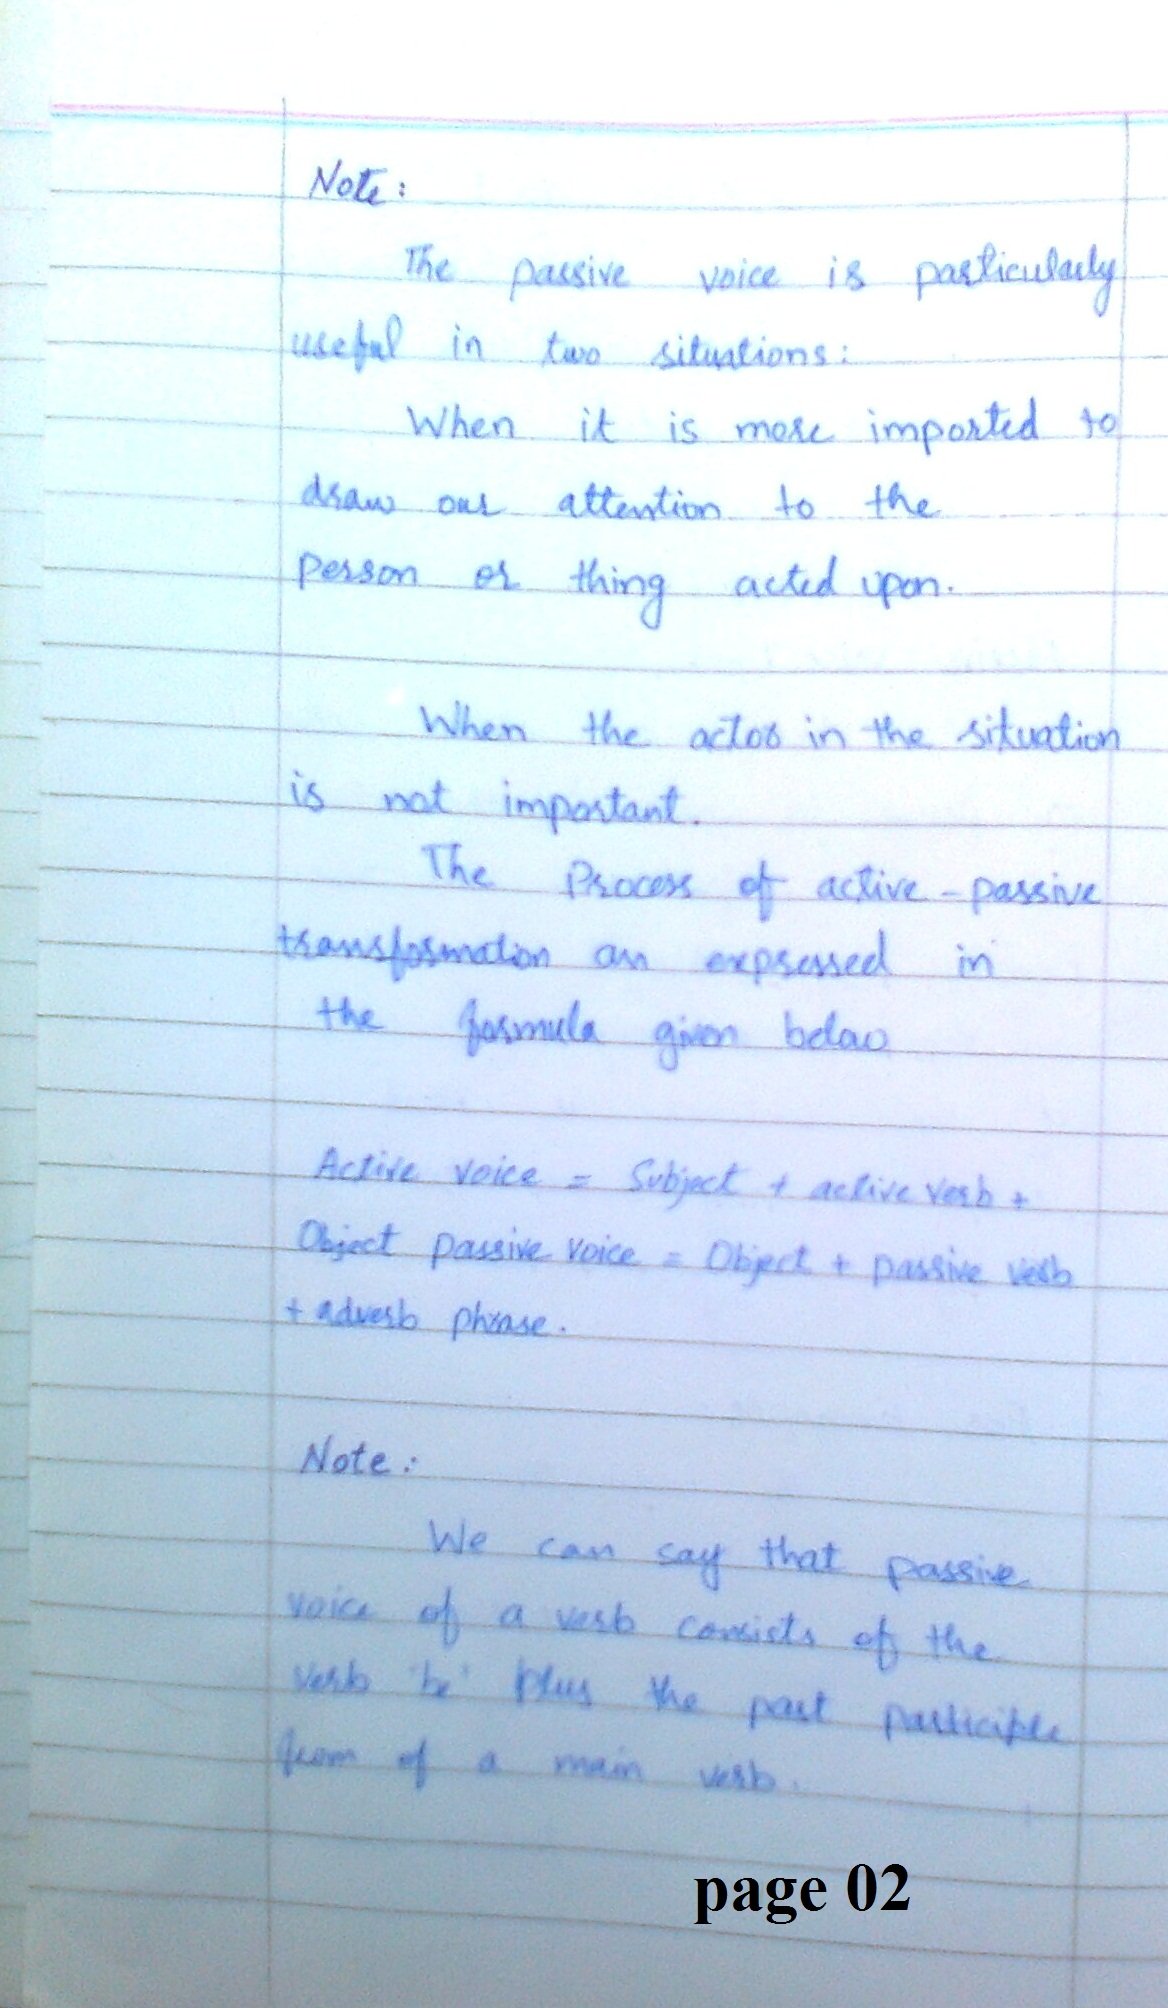 Note:
The passive voice is particularly
useful in two situations:
When it is more imported to
draw our attention to the
person or thing acted upon.
When the actor in the situation
is not important.
The Process of active-passive
transformation an expressed in
the formula given below
Active voice = Subject + active verb +
Object passive voice = Object + passive verb
+ adverb phrase.
Note:
We can say that passive
voice of a verb consists of the
verb 'be' plus the past participle
from of a main verb.
page 02